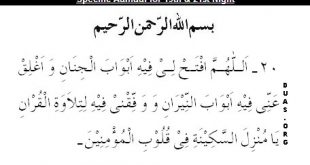 Specific Aamaal for 19th & 21st Night
بسم الله الرّحمن الرّحيم
٢٠ـ اَللّٰهُمَّ افْتَحْ لِىْ فِيْهِ اَبْوَابَ الْجِنَانِ وَ اَغْلِقْ
عَنِّى فِيْهِ اَبْوَابَ النِّيْرَانِ وَ وَفِّقْنِى فِيْهِ لِتِلَاوَةِ الْقُرْاٰنِ
يَا مُنْزِلَ السَّكِيْنَةِ فِىْ قُلُوْبِ الْمُؤْمِنِيْنَ۔
DUAS.ORG